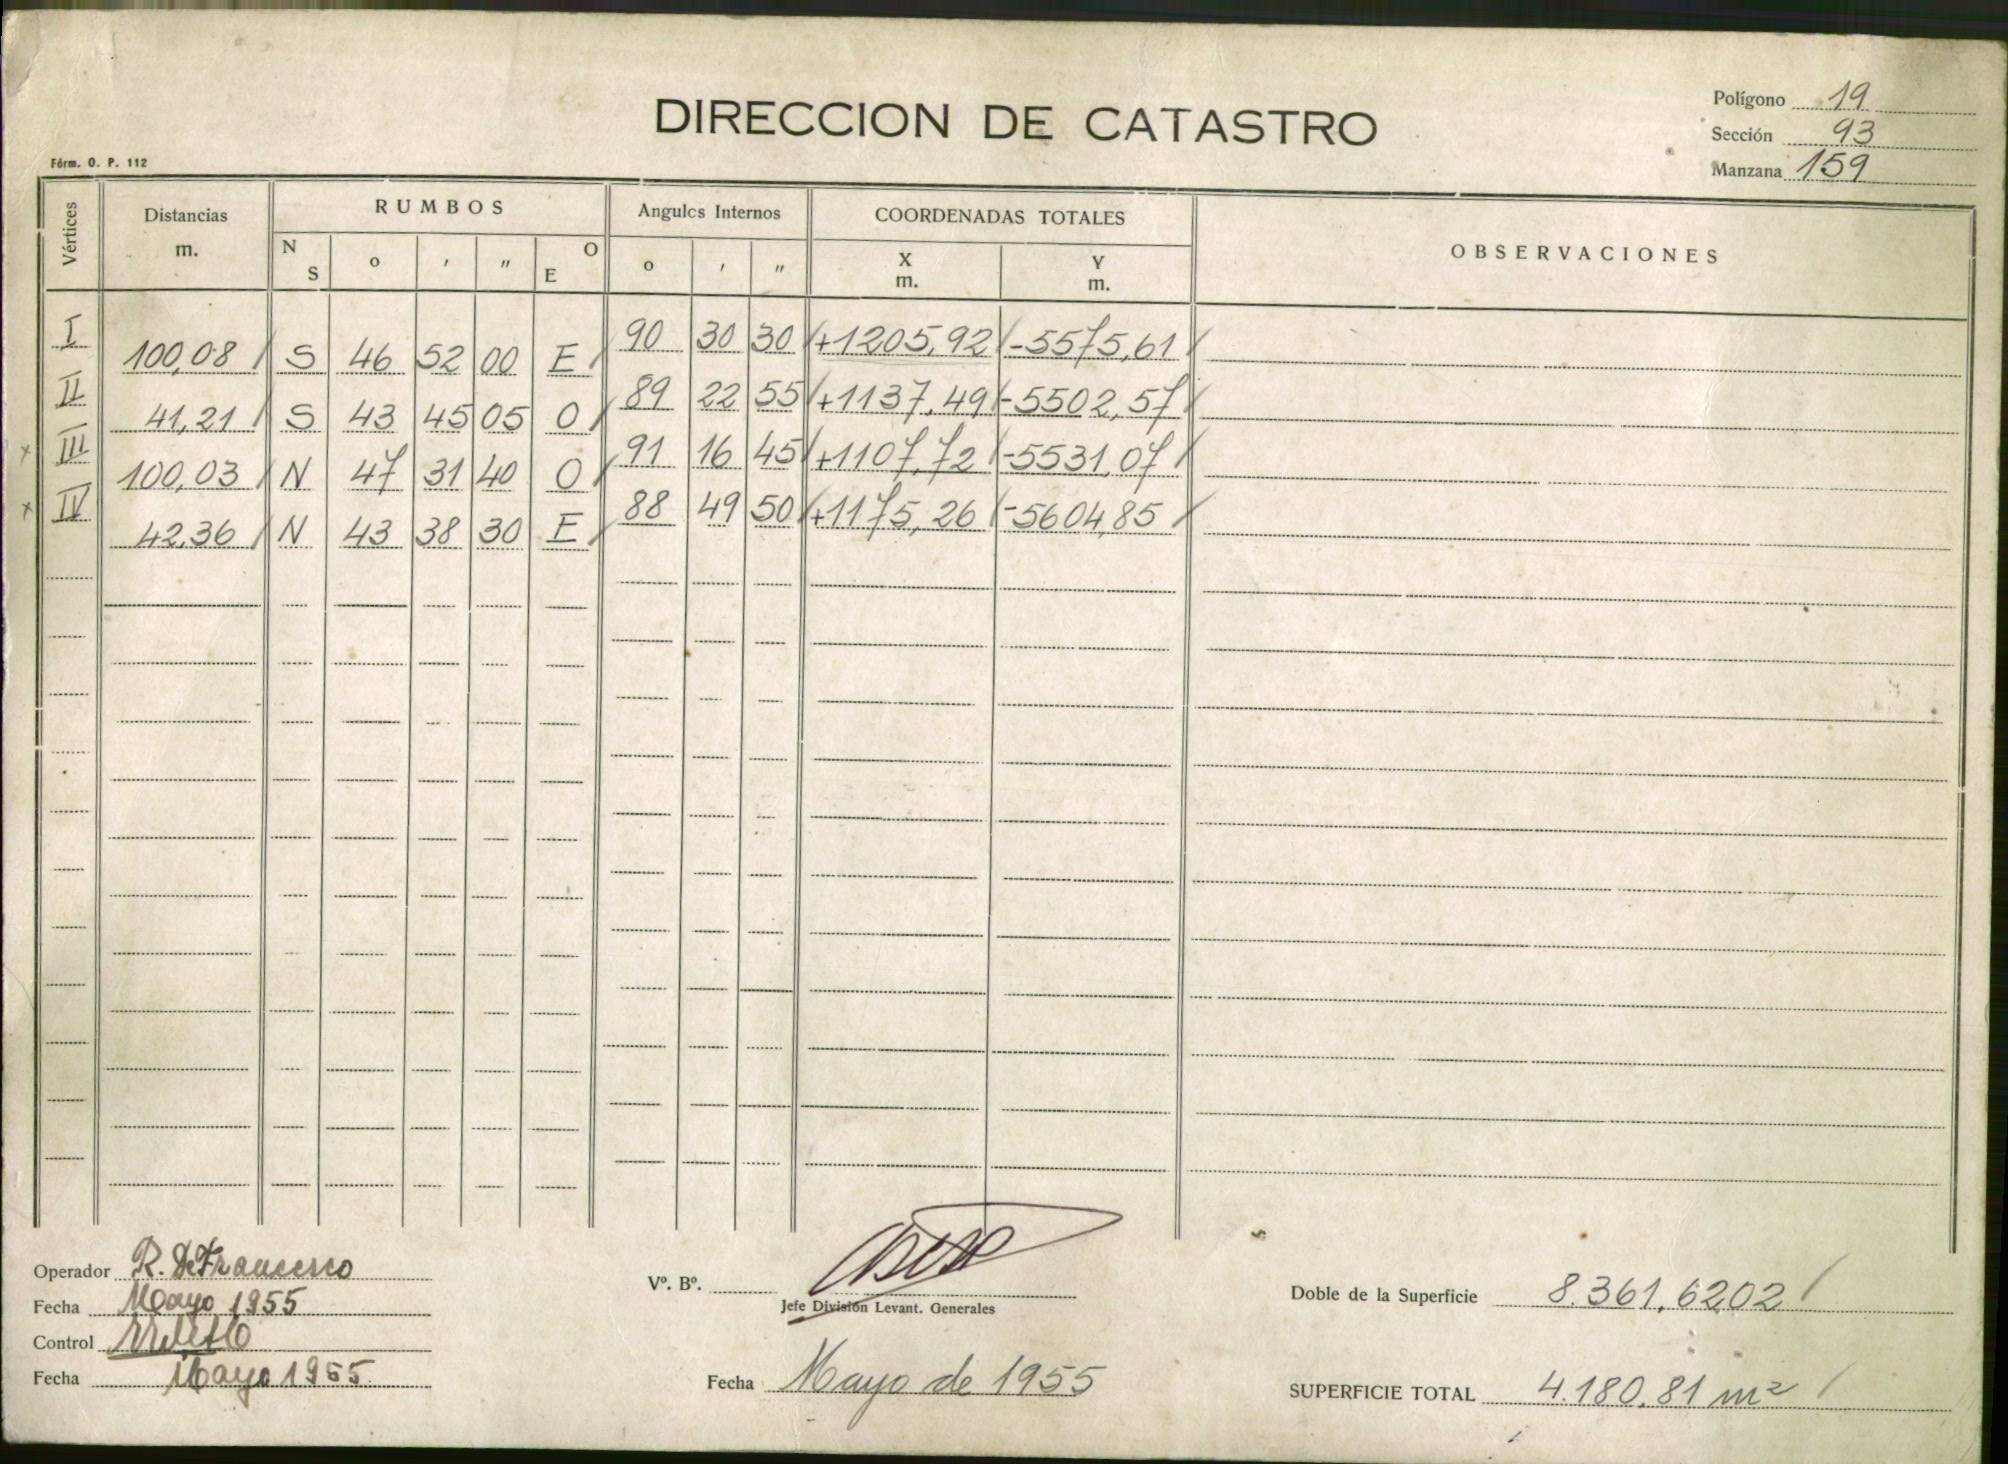 DIRECCION DE CATASTRO
Polígono 19
Sección 93
Manzana 159
Fórm. O. P. 112
Vértices Distancias m. RUMBOS N S o ' " E O Angulos Internos o ' " COORDENADAS TOTALES X m. Y m. OBSERVACIONES
I 90 30 30 +1205,92 -5575,61
100,08 S 46 52 00 E
II 89 22 55 +1137,49 -5502,57
41,21 S 43 45 05 O
III 91 16 45 +1107,72 -5531,07
100,03 N 47 31 40 O
IV 88 49 50 +1175,26 -5604,85
42,36 N 43 38 30 E
Operador R. DeFrancesco
Fecha Mayo 1955
Control
Fecha Mayo 1955
Vº. Bº.
Jefe División Levant. Generales
Fecha Mayo de 1955
Doble de la Superficie 8.361,6202
SUPERFICIE TOTAL 4.180,81 m²